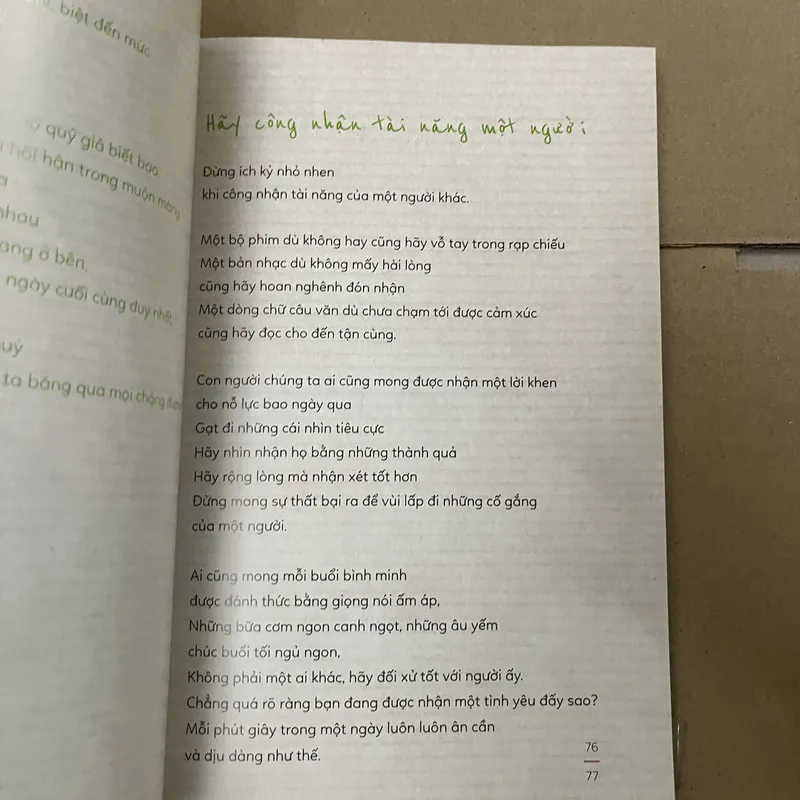 biệt đến mức
quý giá biết bao
hối hận trong muộn màng
nhau
ang ở bên,
ngày cuối cùng duy nhất,
quý
ta băng qua mọi chặng đường
Hãy công nhận tài năng một người
Đừng ích kỷ nhỏ nhen
khi công nhận tài năng của một người khác.
Một bộ phim dù không hay cũng hãy vỗ tay trong rạp chiếu
Một bản nhạc dù không mấy hài lòng
cũng hãy hoan nghênh đón nhận
Một dòng chữ câu văn dù chưa chạm tới được cảm xúc
cũng hãy đọc cho đến tận cùng.
Con người chúng ta ai cũng mong được nhận một lời khen
cho nỗ lực bao ngày qua
Gạt đi những cái nhìn tiêu cực
Hãy nhìn nhận họ bằng những thành quả
Hãy rộng lòng mà nhận xét tốt hơn
Đừng mang sự thất bại ra để vùi lấp đi những cố gắng
của một người.
Ai cũng mong mỗi buổi bình minh
được đánh thức bằng giọng nói ấm áp,
Những bữa cơm ngon canh ngọt, những âu yếm
chúc buổi tối ngủ ngon,
Không phải một ai khác, hãy đối xử tốt với người ấy.
Chẳng quá rõ ràng bạn đang được nhận một tình yêu đấy sao?
Mỗi phút giây trong một ngày luôn luôn ân cần
và dịu dàng như thế.
76
77